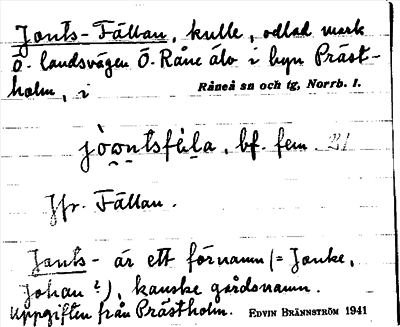 Jonts-Fällan, kulle, odlad mark
Ö. landsvägen Ö. Råne älv i byn Präst-
holm, i Råneå sn och tg, Norrb. l.
jò̤ω̤ntsfèla, bf. fem. 21
Jfr. Fällan.
Jonts- är ett förnamn (= Jonke,
Johan?), kanske gårdsnamn.
Uppgiften från Prästholm. EDVIN BRÄNNSTRÖM 1941